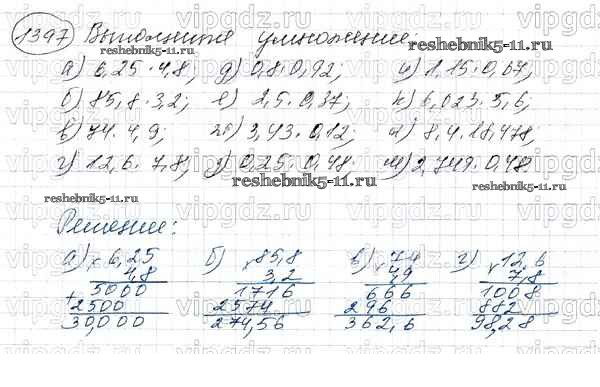 1397 Выполните умножение:
а) 6,25 · 4,8; д) 0,8 · 0,92; и) 1,15 · 0,67;
б) 85,8 · 3,2; е) 2,5 · 0,37; к) 6,023 · 5,6;
в) 74 · 4,9; ж) 3,43 · 0,12; л) 8,4 · 18,478;
г) 12,6 · 7,8; з) 0,25 · 0,48 м) 2,749 · 0,48.
Решение:
а) × 6,25 б) × 85,8 в) × 74 г) × 12,6
4,8 3,2 4,9 7,8
+ 5000 1716 666 1008
2500 2574 296 882
30,000 274,56 362,6 98,28
reshebnik5-11.ru
reshebnik5-11.ru
reshebnik5-11.ru
reshebnik5-11.ru
reshebnik5-11.ru
vipgdz.ru